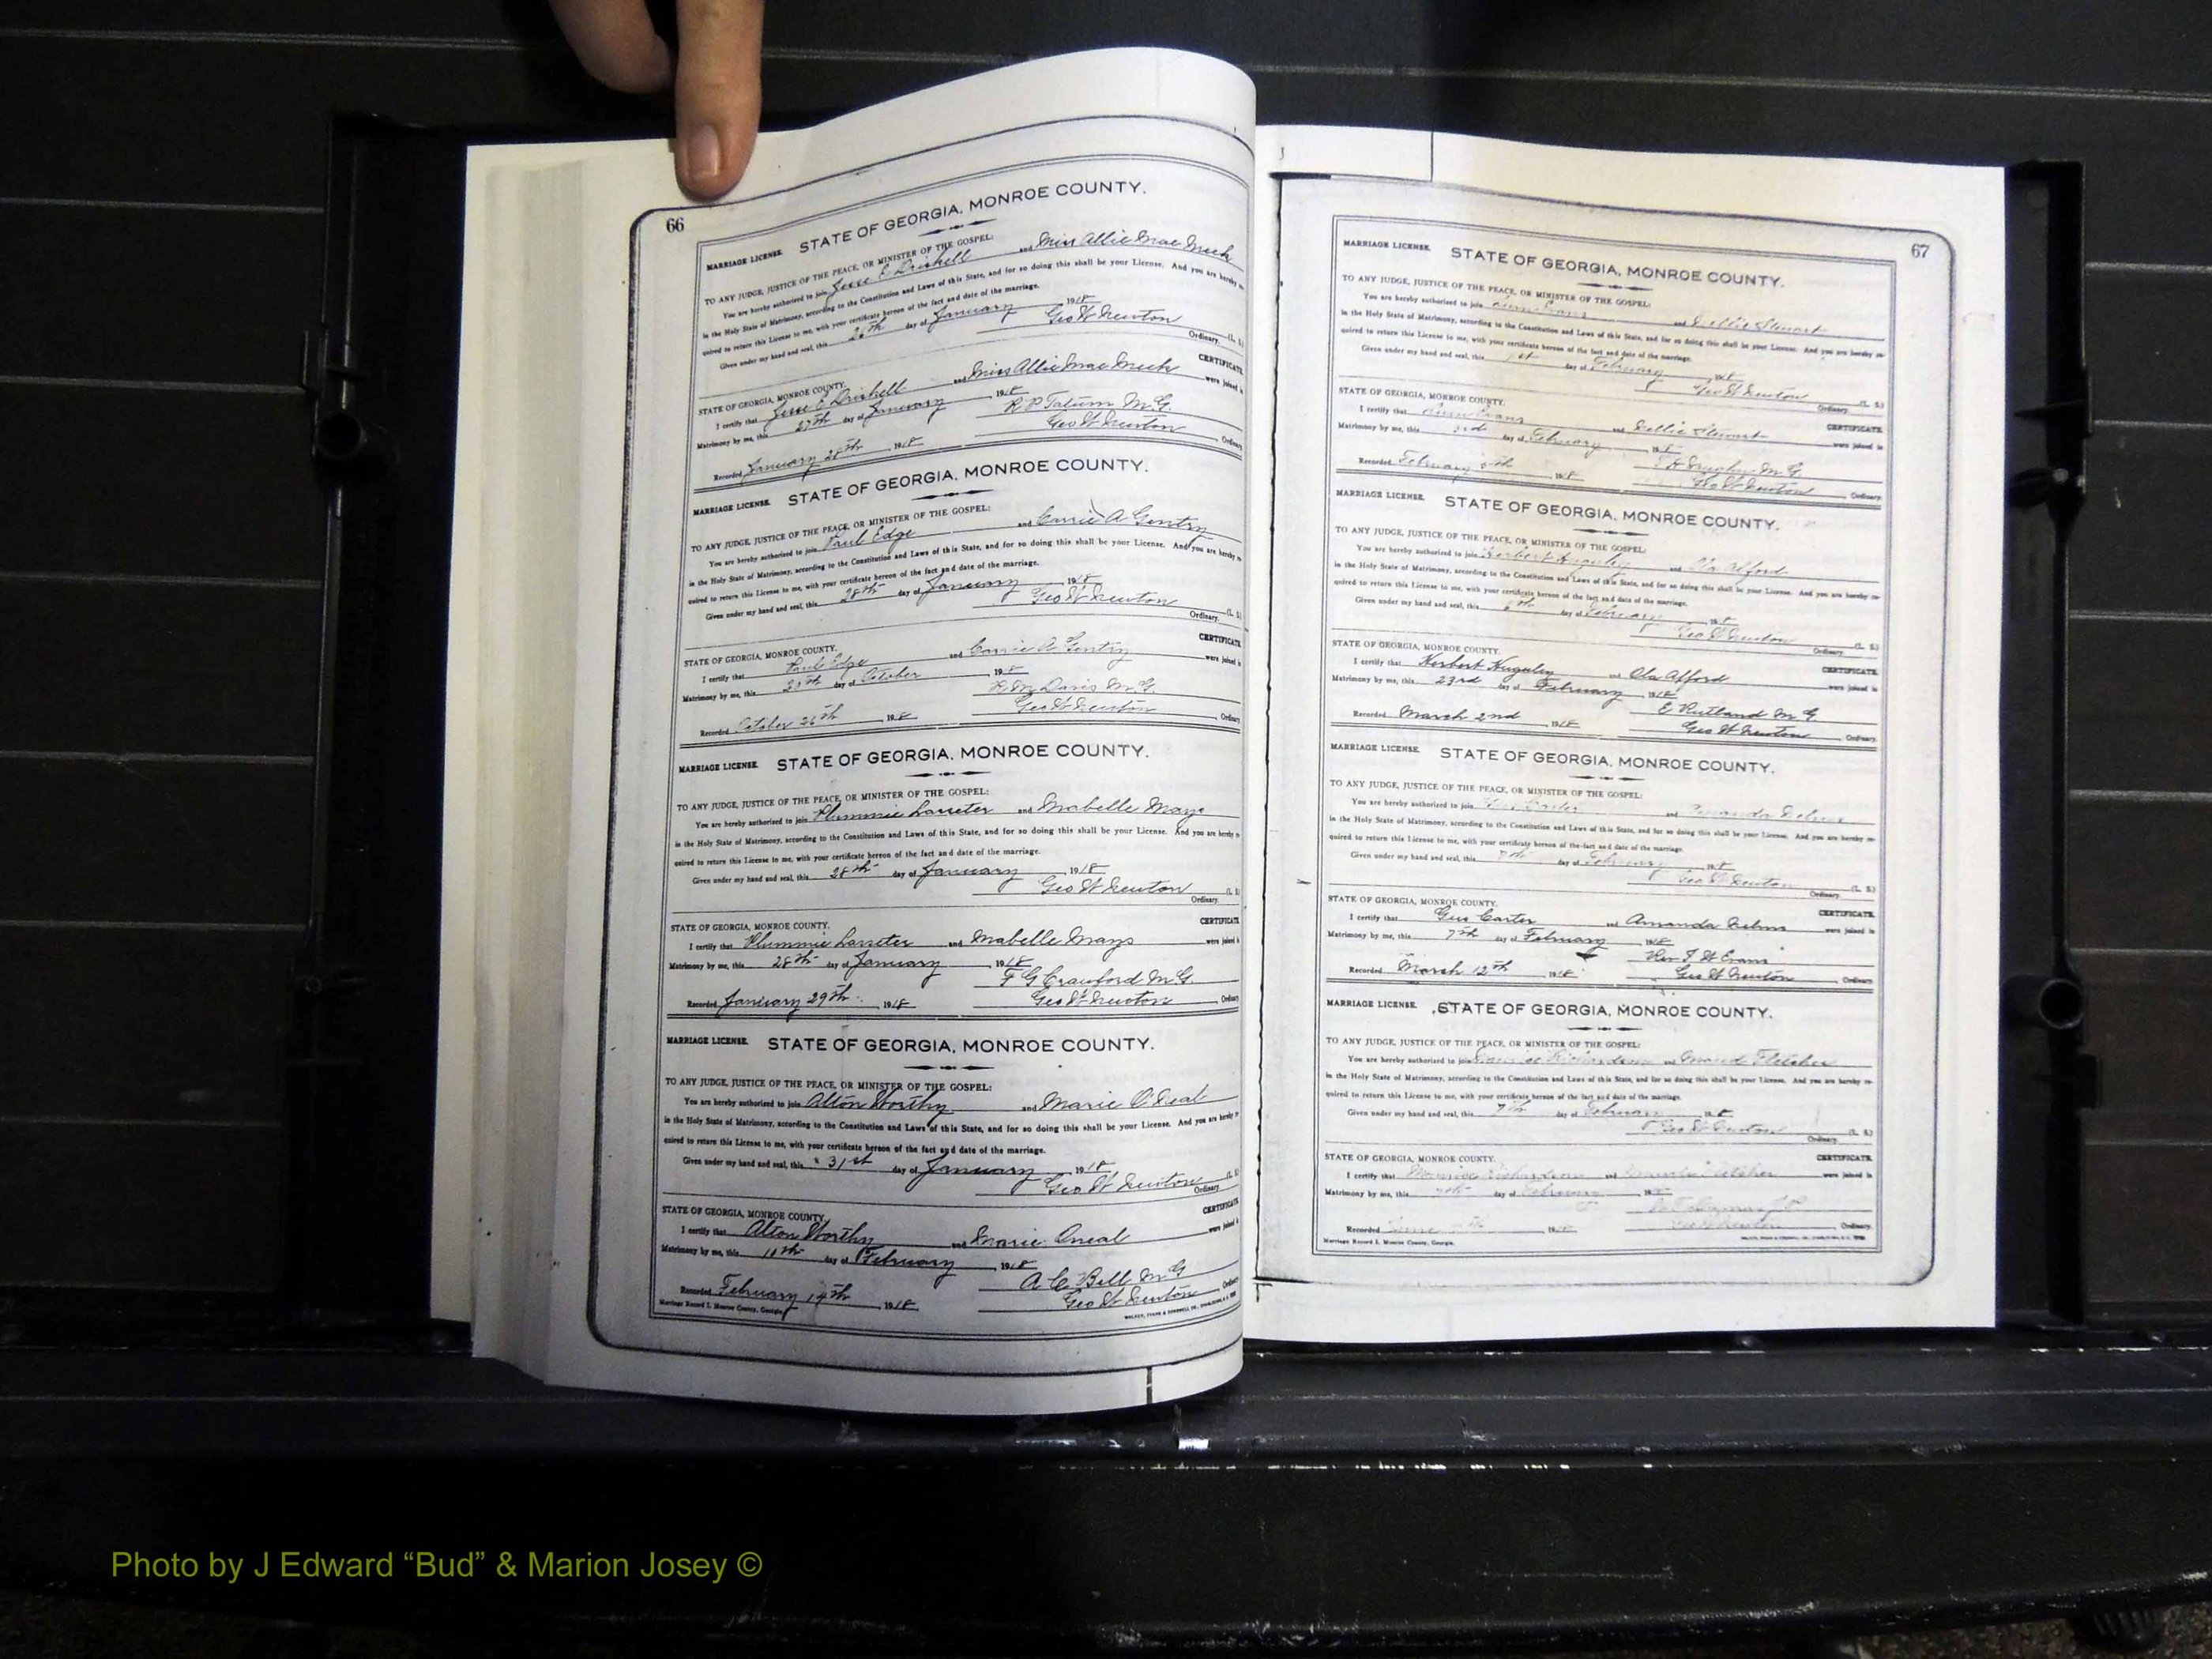 66
MARRIAGE LICENSE. STATE OF GEORGIA, MONROE COUNTY.
TO ANY JUDGE, JUSTICE OF THE PEACE, OR MINISTER OF THE GOSPEL:
You are hereby authorized to join Jesse E Driskell and Miss Allie Mae
in the Holy State of Matrimony, according to the Constitution and Laws of this State, and for so doing this shall be your License. And you are hereby re-
quired to return this License to me, with your certificate hereon of the fact and date of the marriage.
Given under my hand and seal, this 26th day of January 1918
Geo W Newton (L. S.)
Ordinary.
STATE OF GEORGIA, MONROE COUNTY. CERTIFICATE.
I certify that Jesse E Driskell and Miss Allie Mae were joined in
Matrimony by me, this 27th day of January 1918
R P Tatum M.G.
Recorded January 28th 1918 Geo W Newton Ordinary
MARRIAGE LICENSE. STATE OF GEORGIA, MONROE COUNTY.
TO ANY JUDGE, JUSTICE OF THE PEACE, OR MINISTER OF THE GOSPEL:
You are hereby authorized to join Paul Edge and Carrie A Gentry
in the Holy State of Matrimony, according to the Constitution and Laws of this State, and for so doing this shall be your License. And you are hereby re-
quired to return this License to me, with your certificate hereon of the fact and date of the marriage.
Given under my hand and seal, this 28th day of January 1918
Geo W Newton (L. S.)
Ordinary.
STATE OF GEORGIA, MONROE COUNTY. CERTIFICATE
I certify that Paul Edge and Carrie A Gentry were joined in
Matrimony by me, this day of October 1918
Davis M G
Recorded October 26th 1918 Geo W Newton Ordinary
MARRIAGE LICENSE. STATE OF GEORGIA, MONROE COUNTY.
TO ANY JUDGE, JUSTICE OF THE PEACE, OR MINISTER OF THE GOSPEL:
You are hereby authorized to join Plummie Lasseter and Mabelle Mays
in the Holy State of Matrimony, according to the Constitution and Laws of this State, and for so doing this shall be your License. And you are hereby re-
quired to return this License to me, with your certificate hereon of the fact and date of the marriage.
Given under my hand and seal, this 28th day of January 1918
Geo W Newton (L. S.)
Ordinary.
STATE OF GEORGIA, MONROE COUNTY. CERTIFICATE
I certify that Plummie Lasseter and Mabelle Mays were joined in
Matrimony by me, this 28th day of January 1918
F G Crawford M G.
Recorded January 29th 1918 Geo W Newton Ordinary
MARRIAGE LICENSE. STATE OF GEORGIA, MONROE COUNTY.
TO ANY JUDGE, JUSTICE OF THE PEACE, OR MINISTER OF THE GOSPEL:
You are hereby authorized to join Alton Worthy and Marie O'Neal
in the Holy State of Matrimony, according to the Constitution and Laws of this State, and for so doing this shall be your License. And you are hereby re-
quired to return this License to me, with your certificate hereon of the fact and date of the marriage.
Given under my hand and seal, this 31st day of January 1918
Geo W Newton (L. S.)
Ordinary.
STATE OF GEORGIA, MONROE COUNTY. CERTIFICATE
I certify that Alton Worthy and Marie Oneal were joined in
Matrimony by me, this 10th day of February 1918
A C Bell M G
Recorded February 14th 1918 Geo W Newton Ordinary
Marriage Record I. Monroe County, Georgia.
67
MARRIAGE LICENSE. STATE OF GEORGIA, MONROE COUNTY.
TO ANY JUDGE, JUSTICE OF THE PEACE, OR MINISTER OF THE GOSPEL:
You are hereby authorized to join Evans and Stewart
in the Holy State of Matrimony, according to the Constitution and Laws of this State, and for so doing this shall be your License. And you are hereby re-
quired to return this License to me, with your certificate hereon of the fact and date of the marriage.
Given under my hand and seal, this 1st day of February 1918
Geo W Newton (L. S.)
Ordinary.
STATE OF GEORGIA, MONROE COUNTY. CERTIFICATE
I certify that Evans and Stewart were joined in
Matrimony by me, this 3rd day of February 1918
M G
Recorded February 1918 Geo W Newton Ordinary.
MARRIAGE LICENSE. STATE OF GEORGIA, MONROE COUNTY.
TO ANY JUDGE, JUSTICE OF THE PEACE, OR MINISTER OF THE GOSPEL:
You are hereby authorized to join Herbert Huguley and Ola Alford
in the Holy State of Matrimony, according to the Constitution and Laws of this State, and for so doing this shall be your License. And you are hereby re-
quired to return this License to me, with your certificate hereon of the fact and date of the marriage.
Given under my hand and seal, this 6th day of February 1918
Geo W Newton (L. S.)
Ordinary.
STATE OF GEORGIA, MONROE COUNTY. CERTIFICATE
I certify that Herbert Huguley and Ola Alford were joined in
Matrimony by me, this 23rd day of February 1918
E Rutland M G
Recorded March 2nd 1918 Geo W Newton Ordinary.
MARRIAGE LICENSE. STATE OF GEORGIA, MONROE COUNTY.
TO ANY JUDGE, JUSTICE OF THE PEACE, OR MINISTER OF THE GOSPEL:
You are hereby authorized to join Gus Carter Amanda
in the Holy State of Matrimony, according to the Constitution and Laws of this State, and for so doing this shall be your License. And you are hereby re-
quired to return this License to me, with your certificate hereon of the fact and date of the marriage.
Given under my hand and seal, this 7th day of February 1918
Geo W Newton (L. S.)
Ordinary.
STATE OF GEORGIA, MONROE COUNTY. CERTIFICATE.
I certify that Gus Carter and Amanda were joined in
Matrimony by me, this 7th day of February 1918
Rev Evans
Recorded March 12th 1918 Geo W Newton Ordinary.
MARRIAGE LICENSE. STATE OF GEORGIA, MONROE COUNTY.
TO ANY JUDGE, JUSTICE OF THE PEACE, OR MINISTER OF THE GOSPEL:
You are hereby authorized to join Richardson and Maud Fletcher
in the Holy State of Matrimony, according to the Constitution and Laws of this State, and for so doing this shall be your License. And you are hereby re-
quired to return this License to me, with your certificate hereon of the fact and date of the marriage.
Given under my hand and seal, this 7th day of February 1918
Geo W Newton (L. S.)
Ordinary.
STATE OF GEORGIA, MONROE COUNTY. CERTIFICATE
I certify that Richardson and Fletcher were joined in
Matrimony by me, this day of February 1918
Recorded 1918 Geo W Newton Ordinary.
Marriage Record I. Monroe County, Georgia.
Photo by J Edward “Bud” & Marion Josey ©